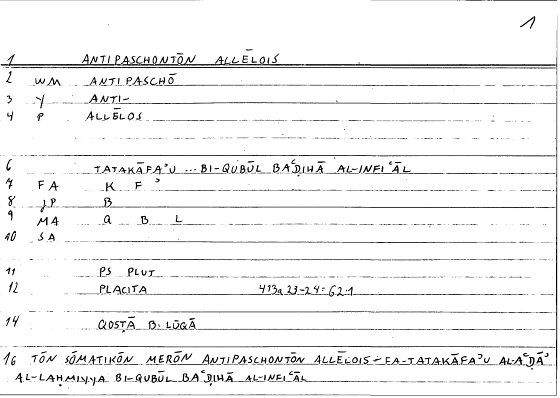 1
1 ANTIPASCHONTŌN ALLĒLOIS
2 WM ANTIPASCHŌ
3 Y ANTI-
4 P ALLĒLOS
6 TATAKĀFAʾU ... BI-QUBŪL BAʿḌIHĀ AL-INFIʿĀL
7 FA K F ʾ
8 JP B
9 MA Q B L
10 SA
11 PS PLUT
12 PLACITA 413a 23-24 = 62.1
14 QOSṬĀ B. LŪQĀ
16 TŌN SŌMATIKŌN MERŌN ANTIPASCHONTŌN ALLĒLOIS - FA-TATAKĀFAʾU AL-AʿḌĀʾ
AL-LAḤMIYYA BI-QUBŪL BAʿḌIHĀ AL-INFIʿĀL